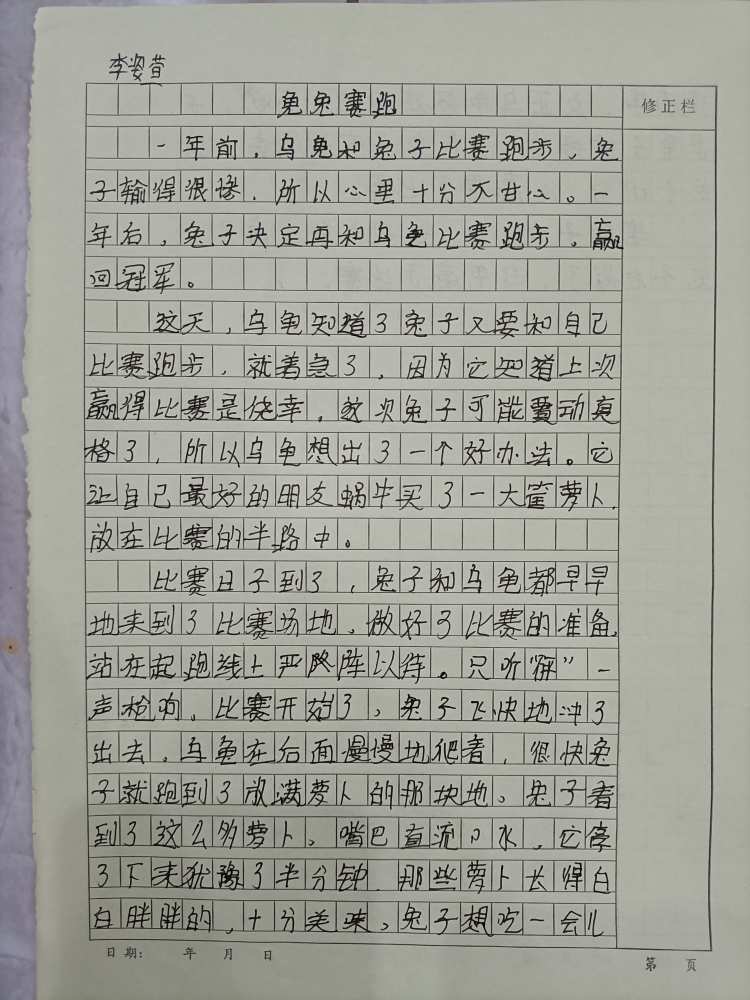 李姿萱
龟兔赛跑
修正栏
一年前，乌龟和兔子比赛跑步，兔
子输得很惨，所以心里十分不甘心。一
年后，兔子决定再和乌龟比赛跑步，赢
回冠军。
这天，乌龟知道了兔子又要和自己
比赛跑步，就着急了，因为它知道上次
赢得比赛是侥幸，这次兔子可能要动真
格了，所以乌龟想出了一个好办法。它
让自己最好的朋友蜗牛买了一大筐萝卜，
放在比赛的半路中。
比赛日子到了，兔子和乌龟都早早
地来到了比赛场地，做好了比赛的准备，
站在起跑线上严阵以待。只听“砰”一
声枪响，比赛开始了，兔子飞快地冲了
出去，乌龟在后面慢慢地爬着，很快兔
子就跑到了放满萝卜的那块地。兔子看
到了这么多萝卜，嘴巴直流口水，它停
了下来犹豫了半分钟，那些萝卜长得白
白胖胖的，十分美味，兔子想吃一会儿
日期： 年 月 日
第 页